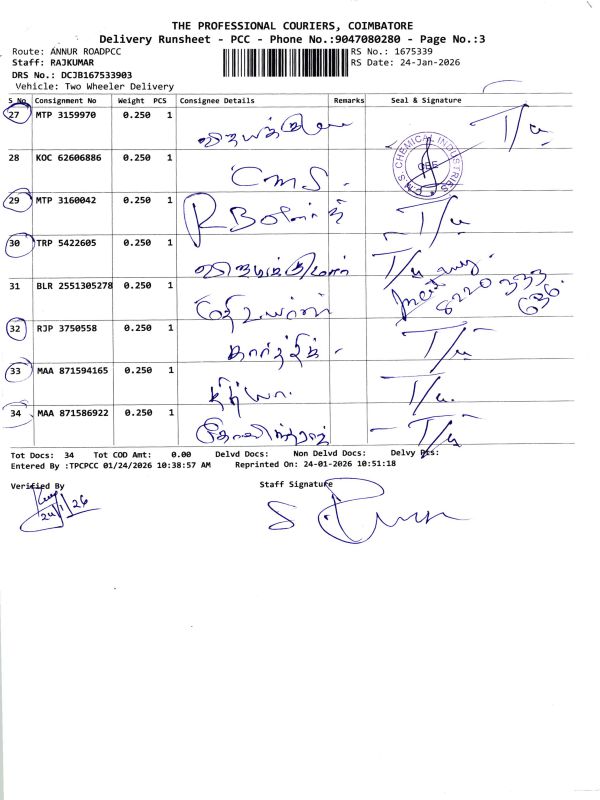 THE PROFESSIONAL COURIERS, COIMBATORE
Delivery Runsheet - PCC - Phone No.:9047080280 - Page No.:3
Route: ANNUR ROADPCC
RS No.: 1675339
Staff: RAJKUMAR
RS Date: 24-Jan-2026
DRS No.: DCJB167533903
Vehicle: Two Wheeler Delivery
S No Consignment No Weight PCS Consignee Details Remarks Seal & Signature
27 MTP 3159970 0.250 1 T/u
28 KOC 62606886 0.250 1 C.M.S. C.M.S. CHEMICAL INDUSTRIES CBE
29 MTP 3160042 0.250 1 T/u
30 TRP 5422605 0.250 1 T/u
31 BLR 2551305278 0.250 1 8220 333 636.
32 RJP 3750558 0.250 1 கார்த்திக் T/u
33 MAA 871594165 0.250 1 T/u.
34 MAA 871586922 0.250 1 T/u
Tot Docs: 34 Tot COD Amt: 0.00 Delvd Docs: Non Delvd Docs: Delvy Pts:
Entered By :TPCPCC 01/24/2026 10:38:57 AM Reprinted On: 24-01-2026 10:51:18
Verified By Staff Signature
24/1/26